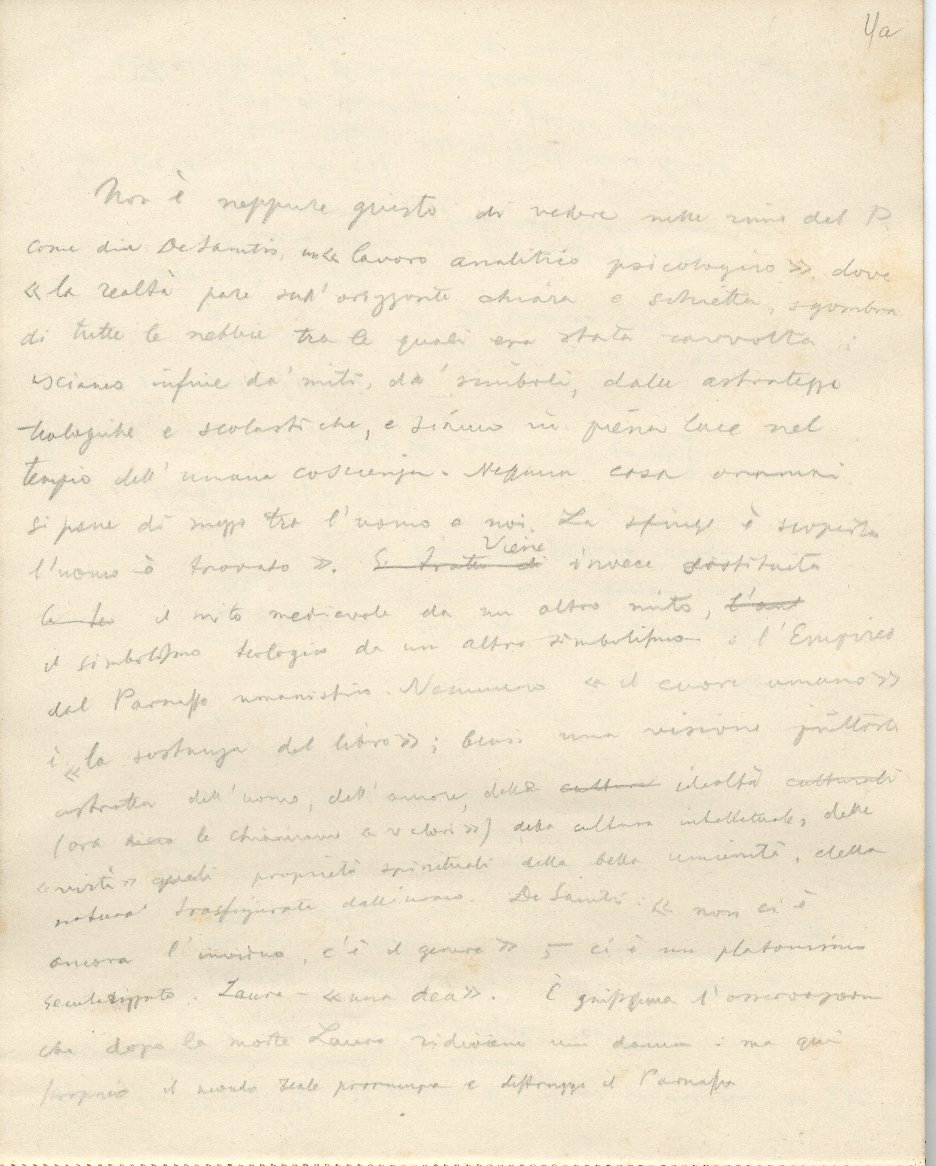 4a
Non è neppure giusto di vedere nelle rime del P.
come dice De Sanctis, un « lavoro analitico psicologico », dove
« la realtà pare sull'orizzonte chiara e schietta, sgombra
di tutte le nebbie tra le quali era stata ravvolta :
usciamo infine da' miti, da' simboli, dalle astrattezze
teologiche e scolastiche, e siamo in piena luce nel
tempio dell'umana coscienza. Nessuna cosa oramai
si pone di mezzo tra l'uomo e noi. La sfinge è scoperta
l'uomo è trovato ». Viene invece sostituito
il mito medievale da un altro mito,
il simbolismo teologico da un altro simbolismo : l'Empireo
dal Parnasso umanistico. Nemmeno « il cuore umano »
è « la sostanza del libro » ; bensì una visione piuttosto
astratta dell'uomo, dell'amore, delle idealtà
(ora le chiamiamo « valori ») della cultura intellettuale, delle
« virtù » quali proprietà spirituali della bella umanità, della
natura trasfigurata dall'uomo. De Sanctis : « non ci è
ancora l'individuo, c'è il genere » ; ci è un platonismo
secolarizzato. Laura - « una dea ». È giustissima l'osservazione
che dopo la morte Laura ridiviene una donna : ma qui
proprio il mondo reale prorompe e distrugge il Parnasso